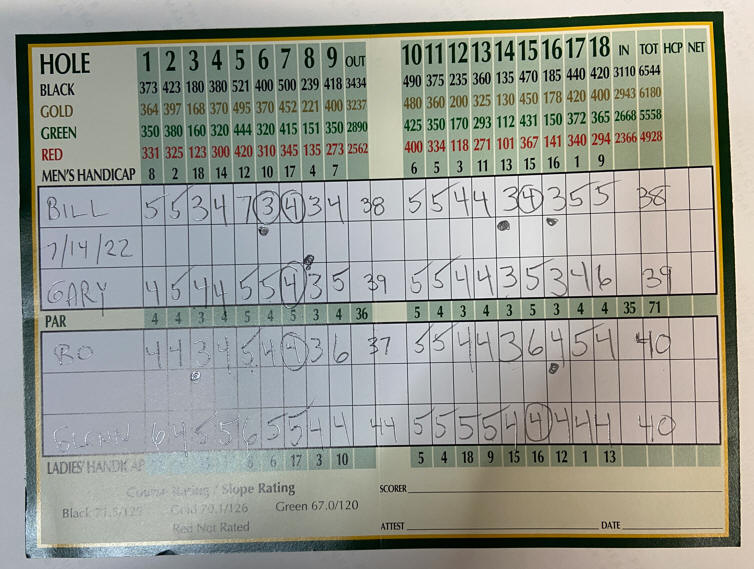 HOLE 1 2 3 4 5 6 7 8 9 OUT 10 11 12 13 14 15 16 17 18 IN TOT HCP NET
BLACK 373 423 180 380 521 400 500 239 418 3434 490 375 235 360 135 470 185 440 420 3110 6544
GOLD 364 397 168 370 495 370 452 221 400 3237 480 360 200 325 130 450 178 420 400 2943 6180
GREEN 350 380 160 320 444 320 415 151 350 2890 425 350 170 293 112 431 150 372 365 2668 5558
RED 331 325 123 300 420 310 345 135 273 2562 400 334 118 271 101 367 141 340 294 2366 4928
MEN'S HANDICAP 8 2 18 14 12 10 17 4 7 6 5 3 11 13 15 16 1 9
BILL 5 5 3 4 7 3 4 3 4 38 5 5 4 4 3 4 3 5 5 38
7/14/22
GARY 4 5 4 4 5 5 4 3 5 39 5 5 4 4 3 5 3 4 6 39
PAR 4 4 3 4 5 4 5 3 4 36 5 4 3 4 3 5 3 4 4 35 71
RO 4 4 3 4 5 4 4 3 6 37 5 5 4 4 3 6 4 5 4 40
GLENN 6 4 5 5 6 5 5 4 4 44 5 5 5 5 4 4 4 4 4 40
LADIES' HANDICAP 6 17 3 10 5 4 18 9 15 16 12 1 13
Course Rating / Slope Rating
SCORER
Black 71.5/129 Gold 70.1/126 Green 67.0/120
Red Not Rated
ATTEST DATE